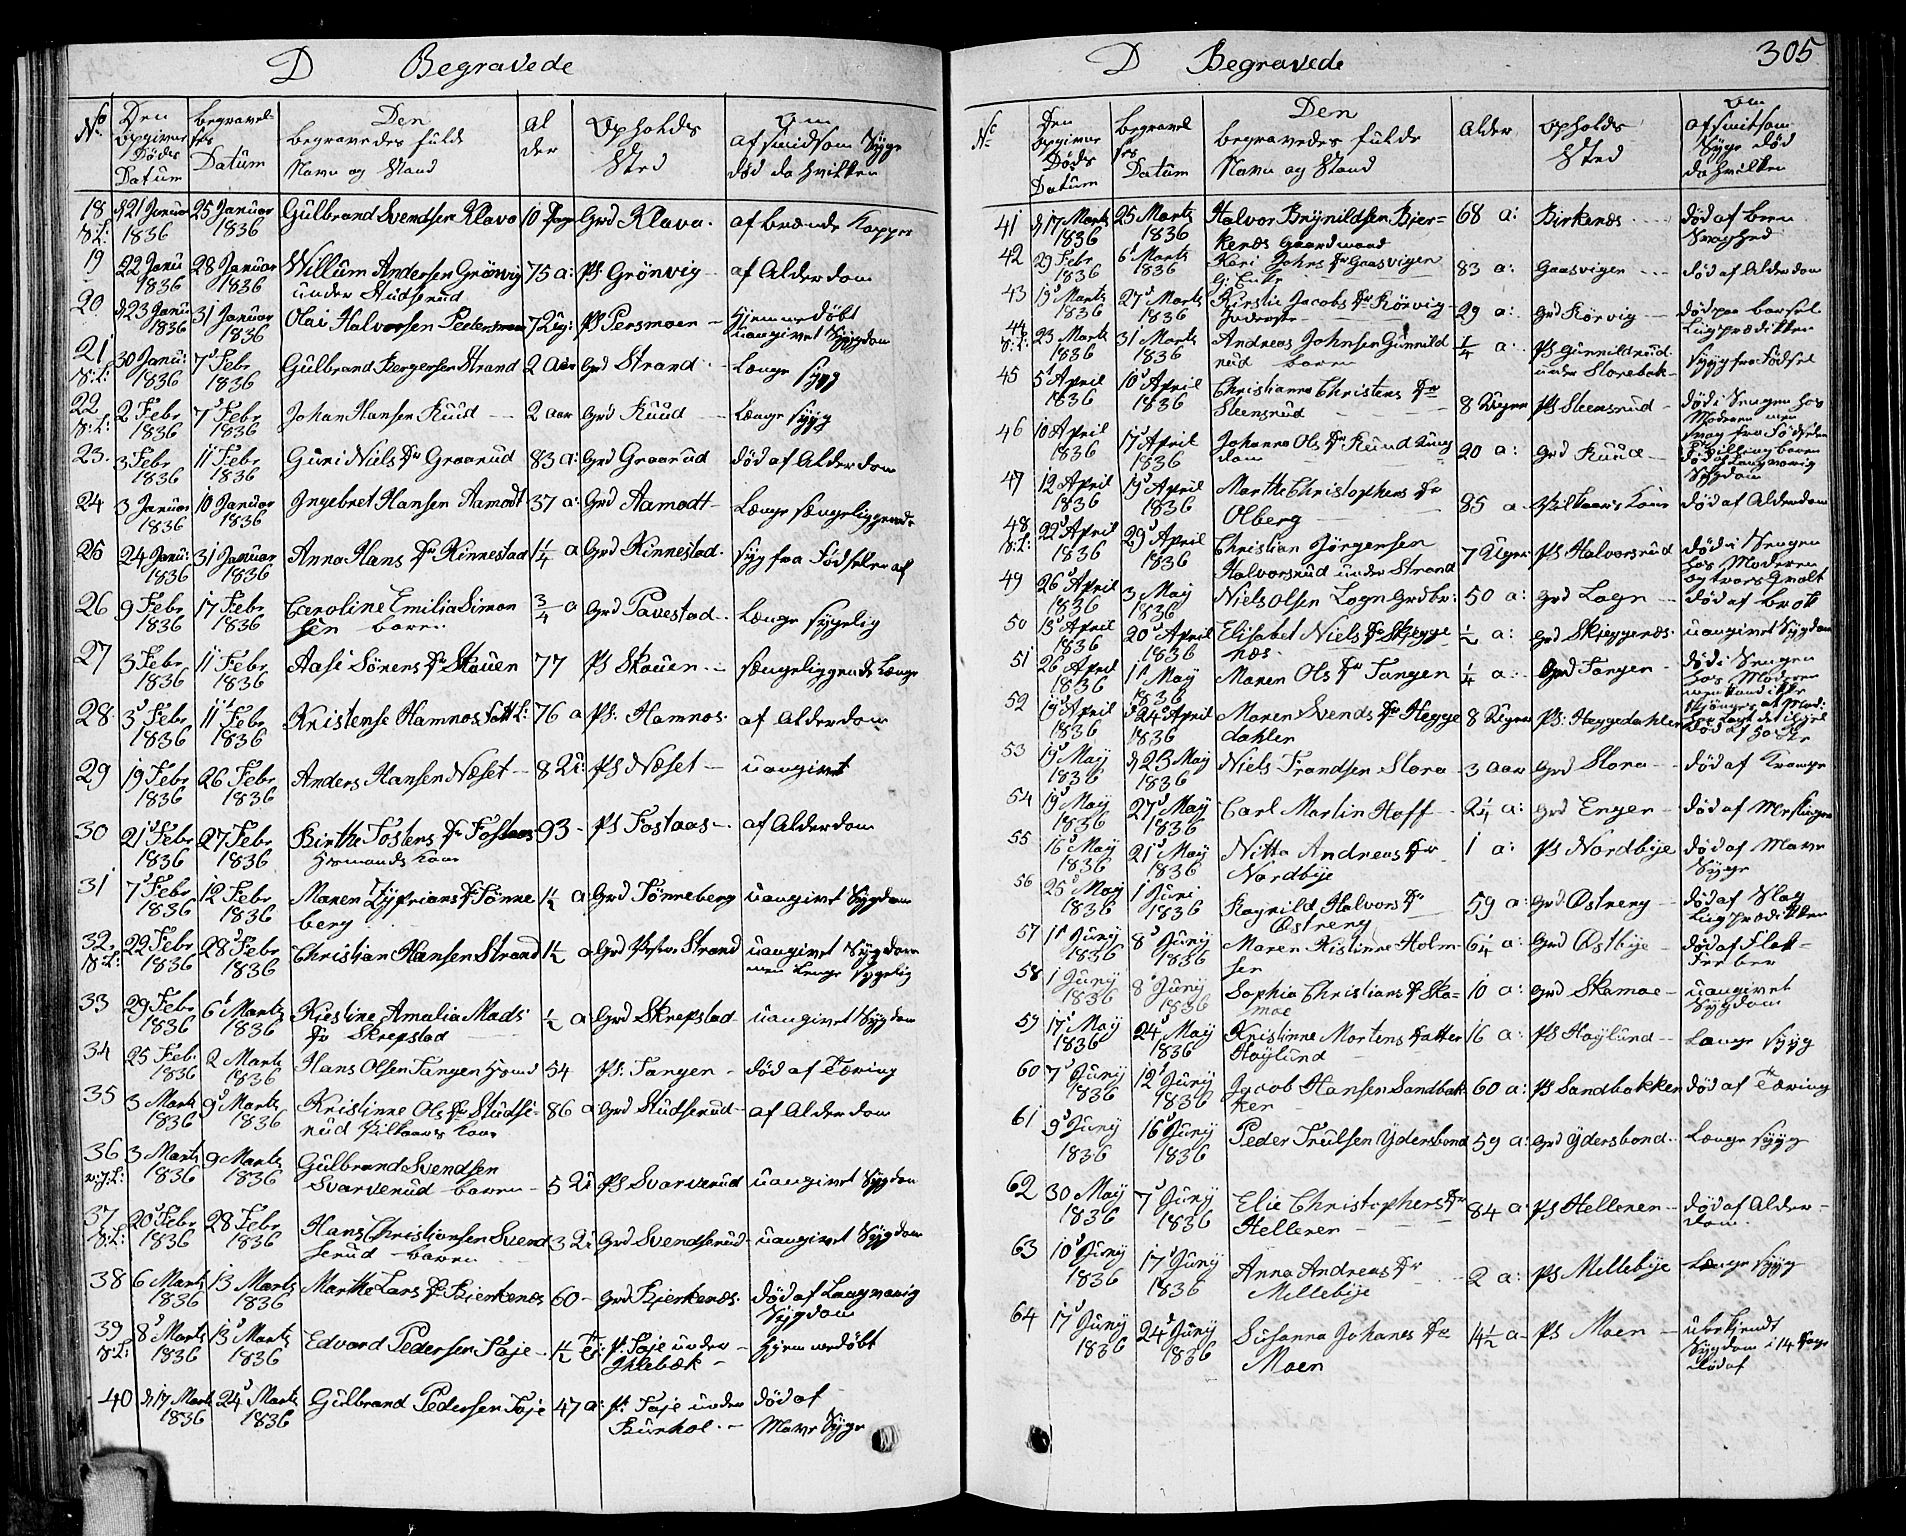 D Begravede
No
Den opgivne Døds Datum
begravelses Datum
Den begravedes fulde Navn og Stand
Alder
Opholds Sted
Om af smidsom Syge død da hvilken
18 d 21 Januar 1836 25 Januar 1836 Gulbrand Svendsen Klava 10 Dage Grd Klava. af brænde Kopper
19 22 Janu 1836 28 Januar 1836 Willum Andersen Grönvig under Studsrud 75 a: Ps Grönvig af Alderdom
20 d 23 Janu 1836 31 Januar 1836 Olai Halvorsen Pedersmoen 7 Ug: Ps Persmoen hjemmedøbt uangivet Sygdom
21 30 Janu: 1836 7 Febr 1836 Gulbrand Bergersen Strand 2 Aar Grd Strand Længe syg
22 2 Febr 1836 7 Febr 1836 Johan Hansen Ruud 2 aar Grd Ruud Længe syg
23. 3 Febr 1836 11 Febr 1836 Guri Niels Dr Graarud 83 a: Grd Graarud død af Alderdom
24 3 Januar 1836 10 Januar 1836 Ingebret Hansen Aamodt 37 a: Grd Aamodt Længe sængeliggende
25 24 Janu: 1836 31 Januar 1836 Anna Hans Dr Kinnestad 1 1/4 a Grd Kinnestad. syg fra Fødselen af
26 9 Febr 1836 17 Febr 1836 Caroline Emilia Simonsen barn 3/4 a Grd Pavestad Længe sygelig
27 3 Febr 1836 11 Febr 1836 Aase Sörens Dr Skauen 77 Ps Skauen sængeliggende Længe
28. 5 Febr 1836 11 Febr 1836 Kristense Hamnos 76 a Ps: Hamnos. af Alderdom
29 19 Febr 1836 26 Febr 1836 Anders Hansen Næset 8 U: Ps Næset uangivet
30 21 Febr 1836 27 Febr 1836 Birthe Tostens Dr Fostaas Huusmands Kone 93 Ps Fostaas af Alderdom
31 7 Febr 1836 12 Febr 1836 Maren Zyprians Dr Tönneberg 1/2 a Grd Tönneberg uangivet Sygdom
32. 22 Febr 1836 28 Febr 1836 Christian Hansen Strand 1 1/2 a Grd Strand uangivet Sygdom men Længe sygelig
33 29 Febr 1836 6 Marts 1836 Kiestine Amalia Mads Dr Skrepstad 1/2 a Grd Skrepstad uangivet Sygdom
34 25 Feb: 1836 2 Marts 1836 Hans Olsen Tangen 54 Ps: Tangen død af Tæring
35 3 Marts 1836 9 Marts 1836 Kristinne Ols Dr Studserud Vilkaars Kone 86 a Grd Studserud af Alderdom
36 3 Marts 1836 9 Marts 1836 Gulbrand Svendsen Svarverud barn 5 U: Ps Svarverud uangivet Sygdom
37 20 Febr 1836 28 Febr 1836 Hans Christiansen Svendserud barn 3 U: Grd Svendserud uangivet Sygdom
38 6 Marts 1836 13 Marts 1836 Marthe Lars Dr Bierkenæs 60 Grd Bjerkenæs. død af Langvarig Sygdom
39 8 Marts 1836 13 Marts 1836 Edvard Pedersen Faje 1/2 T: P: Faje under Ihlebæk hjemmedøbt
40 d 17 Marts 1836 24 Marts 1836 Gulbrand Pedersen Faje 47 a: P: Faje under Burhol. død af Mave Syge
305
D Begravede
No
Den opgivne Døds Datum
begravelses Datum
Den begravedes fulde Navn og Stand
Alder
Opholds Sted
Om af smitsom Syge død da hvilken
41 d 17 Marts 1836 25 Marts 1836 Halvor Brynildsen Bjerkenæs Gaardmand 68 a: Birkenæs død af bensvaghed
42 29 Febr 1836 6 Marts 1836 Kari Johns Dr Gaasvigen Enke 83 a: Gaasvigen død af Alderdom
43 19 Marts 1836 27 Marts 1836 Kirstie Jacobs Dr Körvig Inderste 29 a: Grd Körvig død paa barsel Liigprædikken
44 23 Marts 1836 31 Marts 1836 Andreas Johnsen Gunnildrud barn 1/4 a: Ps Gunnildrud under Storebæk syg fra Fødsel
45 5 April 1836 10 April 1836 Christianna Christens Dr Steensrud 8 Uger Ps Steensrud død i Sengen hos Moderen men svag fra Fødselen Tvillingbarn
46 10 April 1836 17 April 1836 Johanna Ols Dr Ruud Ungdom 20 a: Grd Ruud død af Langvarig Sygdom
47 12 April 1836 19 April 1836 Marthe Christophers Dr Olberg 85 a Vilkaars Kone død af Alderdom
48 22 April 1836 29 April 1836 Christian Jörgensen Halvorsrud under Strand 7 Uger Ps Halvorsrud død i Sengen hos Moderen
49 26 April 1836 3 May 1836 Niels Olsen Logn Grdbr: 50 a: Grd Logn død af brok
50 13 April 1836 20 April 1836 Elisabet Niels Dr Skjeggenæs. 1/2 a: Grd Skjeggenæs. uangivet Sygdom
51 26 April 1836 11 May 1836 Maren Ols Dr Tangen 1/4 a: Grd Tangen død i Sengen hos Moderen
52 19 April 1836 24 April 1836 Maren Svends Dr Heggedahlen 8 Uger Ps: Heggedahlen
53 19 May 1836 d 23 May 1836 Niels Frandsen Stora 3 aar Grd Stora død af Krampe
54 19 May 1836 27 May 1836 Carl Martin Hoff 2 1/4 a: Grd Enger død af Meslinger
55 16 May 1836 21 May 1836 Nitta Andreas Dr Nordbye 1 a: Ps Nordbije død af Mave Syge
56 25 May 1836 1 Juni 1836 Ragnild Halvors Dr Østreng 59 a: Grd Østreng død af Slag Liigprædikken
57 11 Juny 1836 8 Juny 1836 Maren Kistinne Holmsen 6 1/4 a: Grd Østbije død af Flekfeeber
58 1 Juny 1836 8 Juny 1836 Sophia Christians Dr Skamoe 10 a: Grd Skamoe uangivet Sygdom
59 17 May 1836 24 May 1836 Kristinne Mortens Datter Høylund 16 a: Ps Høylund Længe syg
60 7 Juny 1836 12 Juny 1836 Jacob Hansen Sandbakken 60 a: Ps Sandbakken død af Tæring
61 9 Juny 1836 16 Juny 1836 Peder Trulsen Ydersbond 59 a: Grd Ydersbond. Længe syg
62 30 May 1836 7 Juny 1836 Elie Christophers Dr Helleren 84 a: Ps Helleren død af Alderdom.
63 10 Juny 1836 17 Juny 1836 Anna Andreas Dr Millebije 2 a: Ps Millebije Længe syg
64 17 Juny 1836 24 Juny 1836 Susanna Johanes Dr Moen 14 1/2 a Ps Moen ubekjendt Sygdom i 14 Dage død af